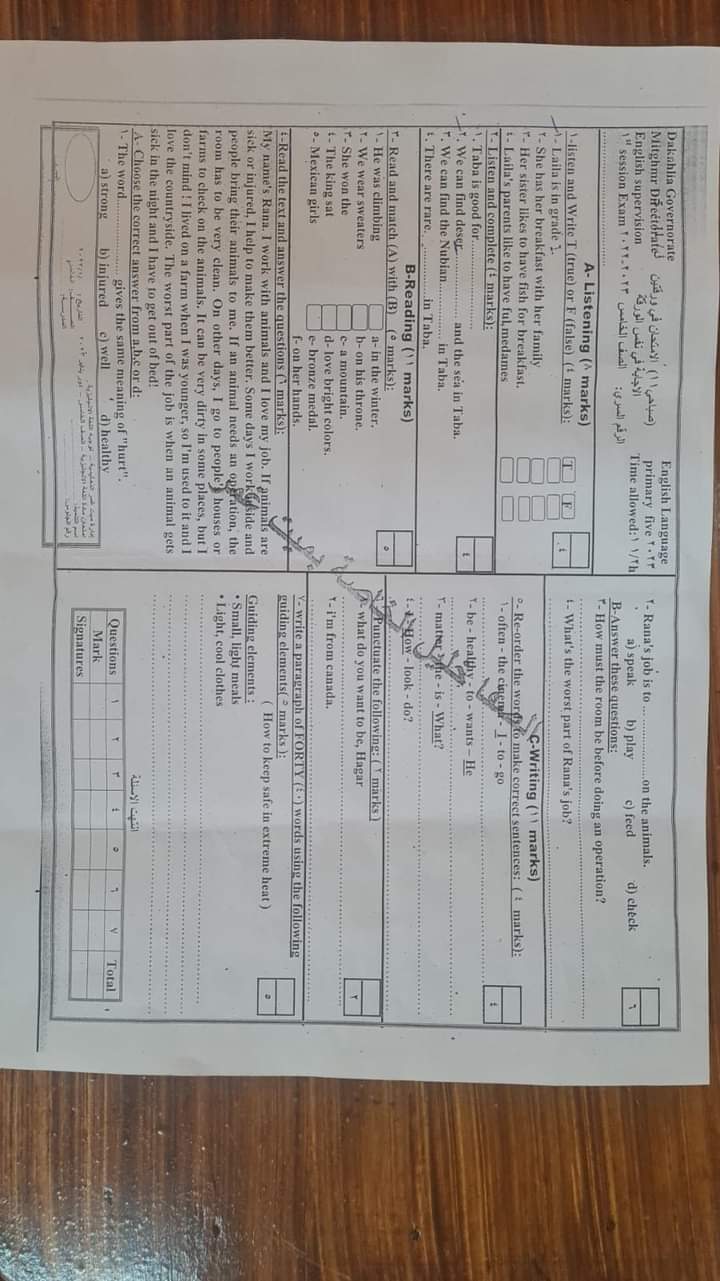 Dakahlia Governorate
Mitghmr Directorate
English supervision
1st session Exam ٢٠٢٢-٢٠٢٣
(صباحي ١١) الامتحان في ورقتين
الاجابة في نفس الورقة
الصف الخامس
الرقم السري:
English Language
primary five ٢٠٢٣
Time allowed:١ ١/٢h
A- Listening (٨ marks)
١-listen and Write T (true) or F (false) (٤ marks):
T F
١- Laila is in grade ٦.
٢- She has her breakfast with her family
٣- Her sister likes to have fish for breakfast.
٤- Laila's parents like to have ful medames
٤
٢- Listen and complete (٤ marks):
١. Taba is good for....................
٢. We can find desert........... and the sea in Taba.
٣. We can find the Nubian............... in Taba.
٤. There are rare............... in Taba.
٤
B-Reading (١١ marks)
٣- Read and match (A) with (B) (٥ marks):
١- He was climbing a- in the winter.
٢- We wear sweaters b- on his throne.
٣- She won the c- a mountain.
٤- The king sat d- love bright colors.
٥- Mexican girls e- bronze medal.
f- on her hands.
٥
٤-Read the text and answer the questions (٦ marks):
My name's Rana. I work with animals and I love my job. If animals are
sick or injured, I help to make them better. Some days I work inside and
people bring their animals to me. If an animal needs an operation, the
room has to be very clean. On other days, I go to people's houses or
farms to check on the animals. It can be very dirty in some places, but I
don't mind ! I lived on a farm when I was younger, so I'm used to it and I
love the countryside. The worst part of the job is when an animal gets
sick in the night and I have to get out of bed!
A- Choose the correct answer from a,b,c or d:
١- The word............ gives the same meaning of "hurt".
a) strong b) injured c) well d) healthy
٢- Rana's job is to ............... on the animals.
a) speak b) play c) feed d) check
B-Answer these questions:
٣- How must the room be before doing an operation?
٤- What's the worst part of Rana's job?
٦
C-Writing (١١ marks)
٥- Re-order the words to make correct sentences: ( ٤ marks):
١- often - the cinema - I - to - go
٢- be - healthy - to - wants - He
٣- matter - the - is - What?
٤- - How - look - do?
٤
Punctuate the following: ( ٢ marks)
١- what do you want to be, Hagar
٢- i'm from canada.
٢
٧- write a paragraph of FORTY (٤٠) words using the following
guiding elements( ٥ marks ):
( How to keep safe in extreme heat )
Guiding elements :
• Small, light meals
• Light, cool clothes
٥
انتهت الاسئلة
Questions ١ ٢ ٣ ٤ ٥ ٦ ٧ Total
Mark
Signatures